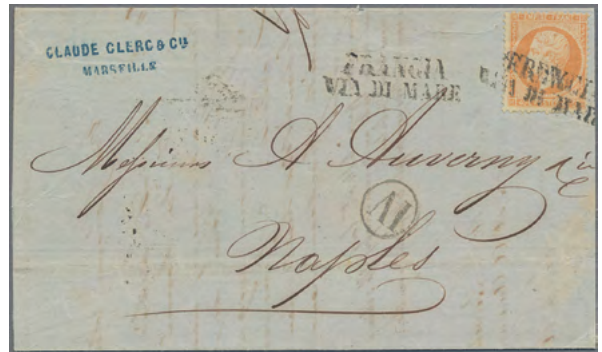 CLAUDE CLERC & Cie
MARSEILLE
EMPIRE FRANC
FRANCIA
VIA DI MARE
FRANCIA
VIA DI MAR
Messieurs A Auverny & Cie
Naples